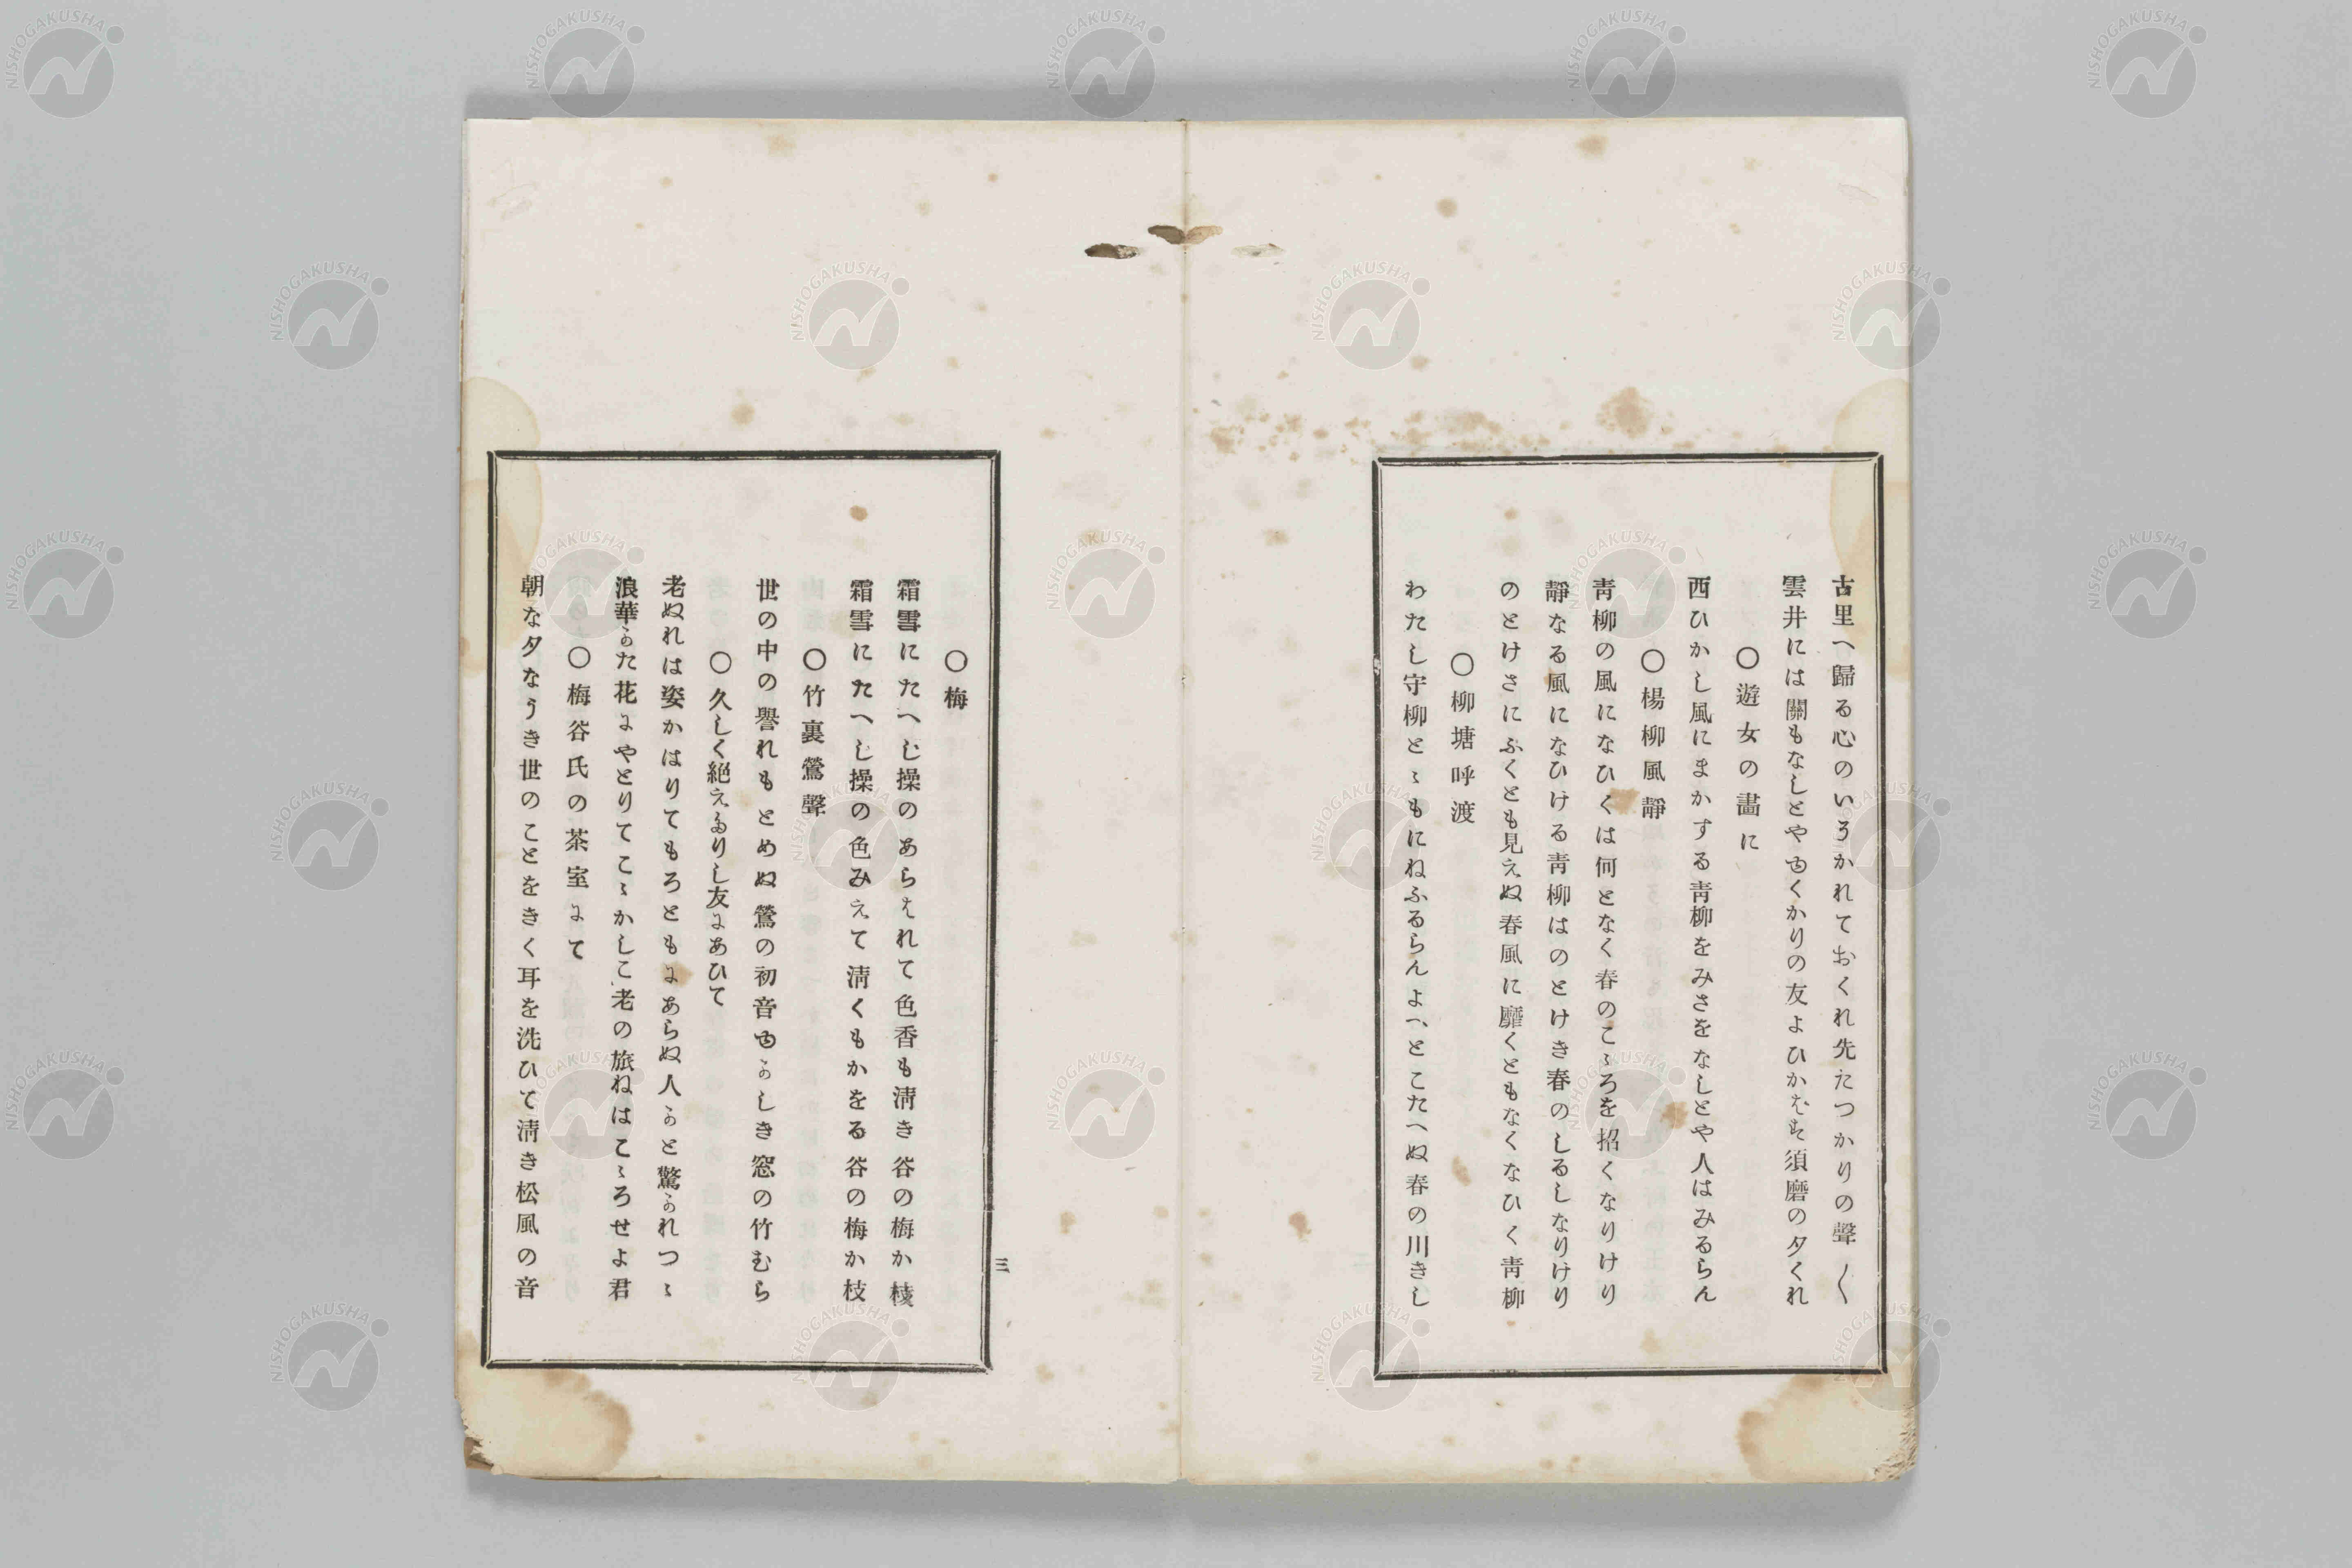 古里へ歸る心のいろかれておくれ先たつかりの聲〱
雲井には關もなしとやゆくかりの友よひかはす須磨の夕くれ
〇遊女の畵に
西ひかし風にまかする靑柳をみさをなしとや人はみるらん
〇楊柳風靜
靑柳の風になひくは何となく春のこゝろを招くなりけり
靜なる風になひける靑柳はのとけき春のしるしなりけり
のとけさにふくとも見えぬ春風に靡くともなくなひく靑柳
〇柳塘呼渡
わたし守柳とゝもにねふるらんよへとこたへぬ春の川きし
三
〇梅
霜雪にたへし操のあらはれて色香も淸き谷の梅か枝
霜雪にたへし操の色みえて淸くもかをる谷の梅か枝
〇竹裏鶯聲
世の中の譽れもとめぬ鶯の初音ゆかしき窓の竹むら
〇久しく絶えゐりし友にあひて
老ぬれは姿かはりてもろともにあらぬ人かと驚かれつゝ
浪華かた花にやとりてこゝかしこ老の旅ねはこゝろせよ君
〇梅谷氏の茶室にて
朝な夕なうき世のことをきく耳を洗ひて淸き松風の音
NISHOGAKUSHA